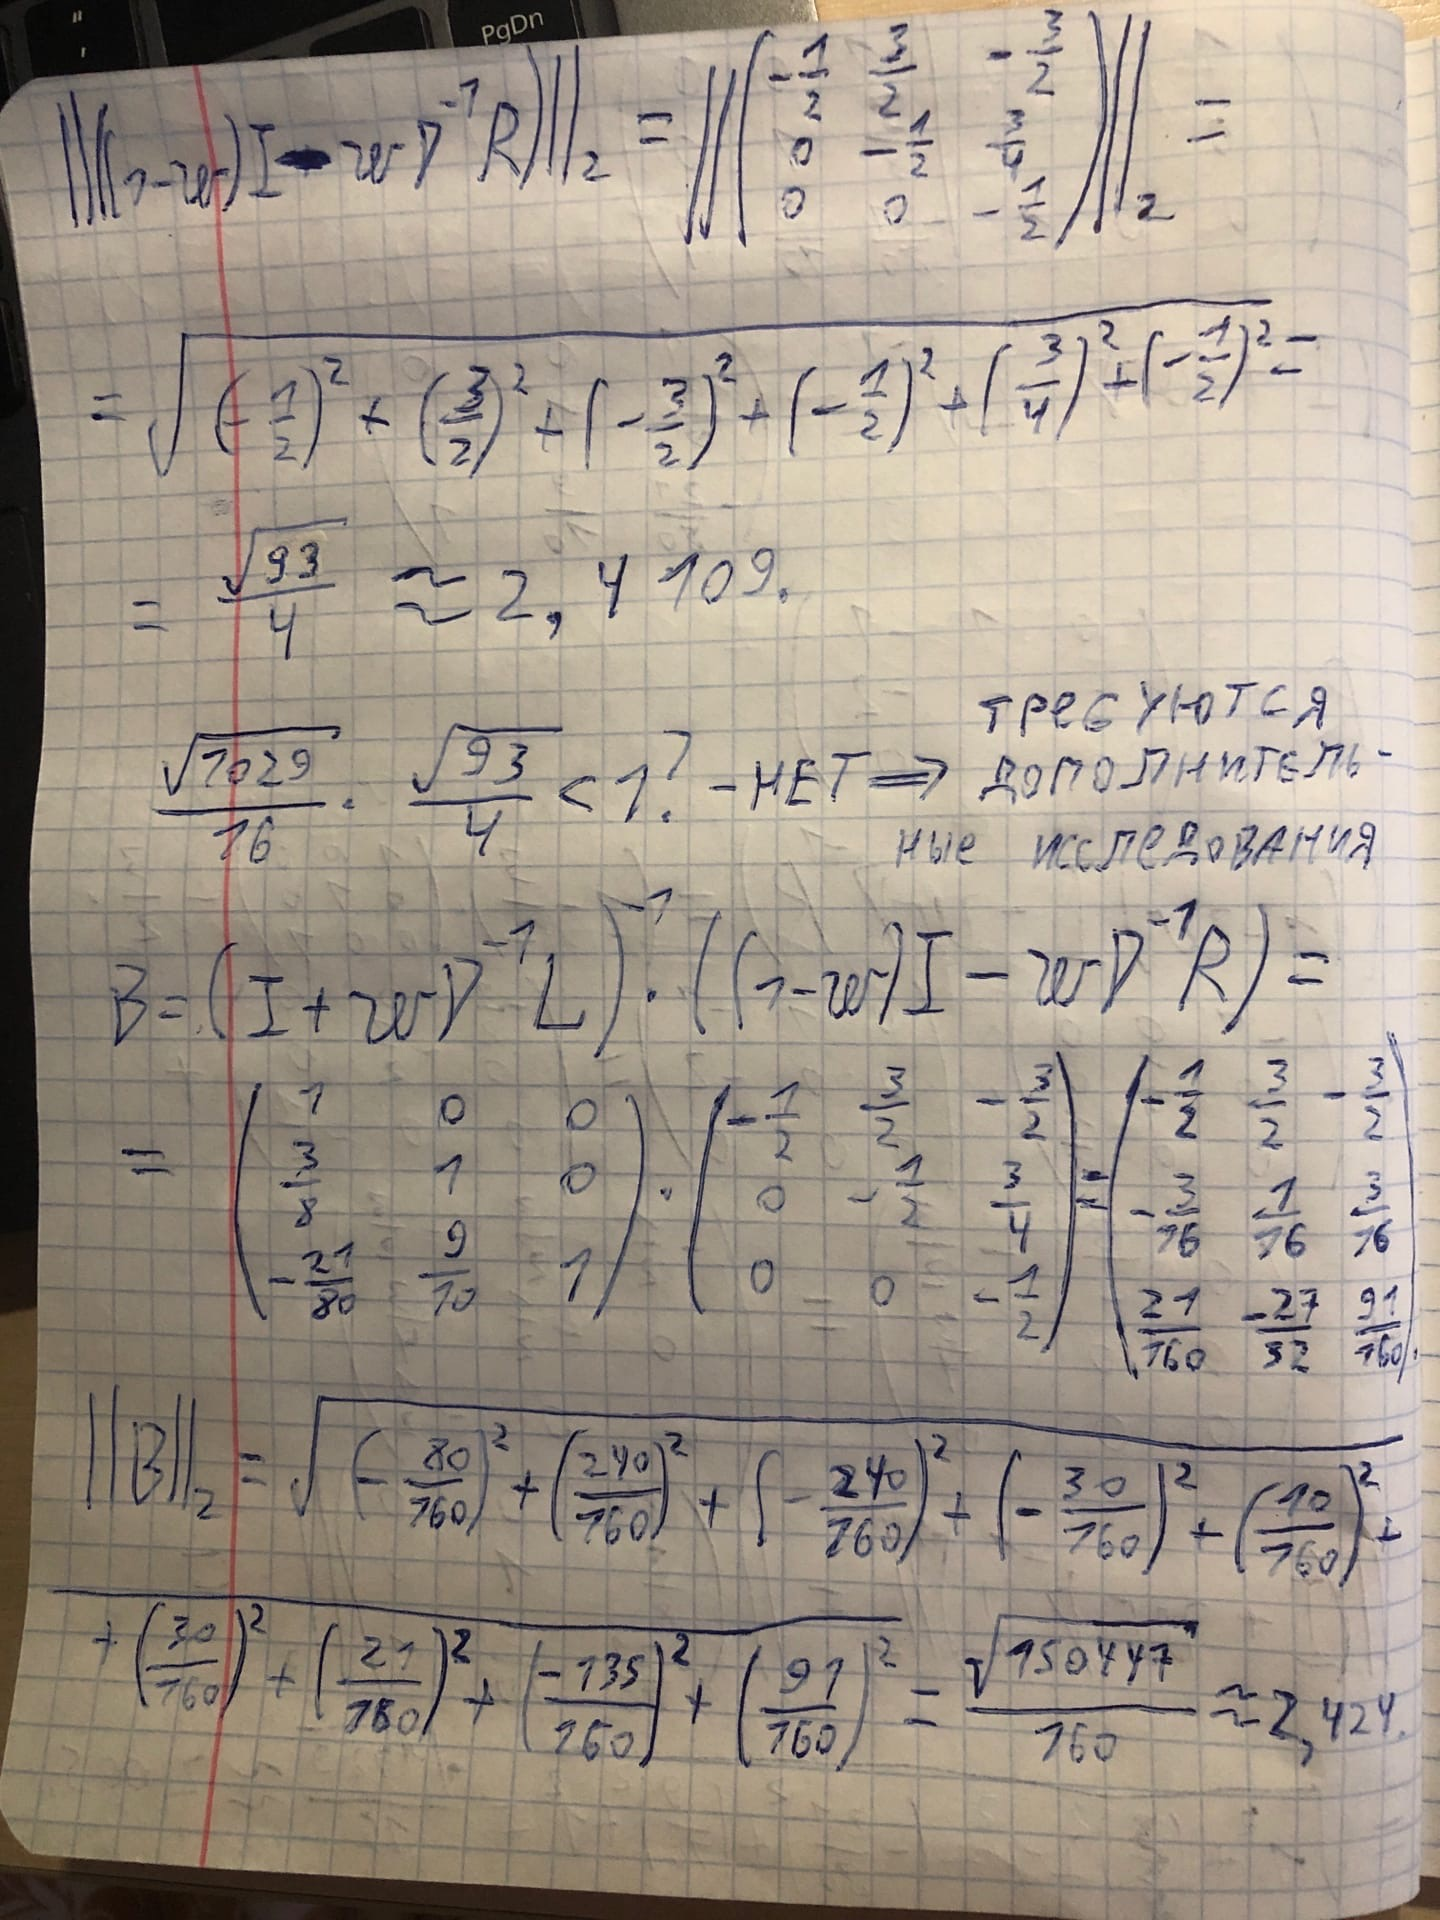 PgDn
||((1-w)I - wD⁻¹R)||₂ = ||(-1/2 3/2 -3/2; 0 -1/2 3/4; 0 0 -1/2)||₂ =
= √((-1/2)² + (3/2)² + (-3/2)² + (-1/2)² + (3/4)² + (-1/2)²) =
= √93/4 ≈ 2,4109.
√1029/16 · √93/4 < 1? - НЕТ ⇒ ТРЕБУЮТСЯ
ДОПОЛНИТЕЛЬ-
НЫЕ ИССЛЕДОВАНИЯ
B = (I + wD⁻¹L)⁻¹ · ((1-w)I - wD⁻¹R) =
= (1 0 0; 3/8 1 0; -21/80 9/10 1) · (-1/2 3/2 -3/2; 0 -1/2 3/4; 0 0 -1/2) = (-1/2 3/2 -3/2; -3/16 1/16 3/16; 21/160 -27/32 91/160).
||B||₂ = √((-80/160)² + (240/160)² + (-240/160)² + (-30/160)² + (10/160)² +
+ (30/160)² + (21/160)² + (-135/160)² + (91/160)²) = √150447/160 ≈ 2,424.